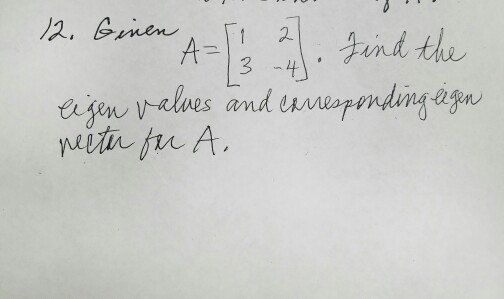 12. Given A = [1 2
3 -4]. Find the
eigen values and corresponding eigen
vector for A.